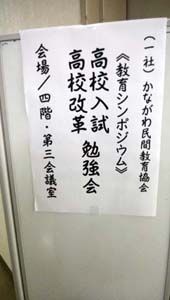 （一社）かながわ民間教育協会
《教育シンポジウム》
高校入試 勉強会
高校改革
会場／四階・第三会議室